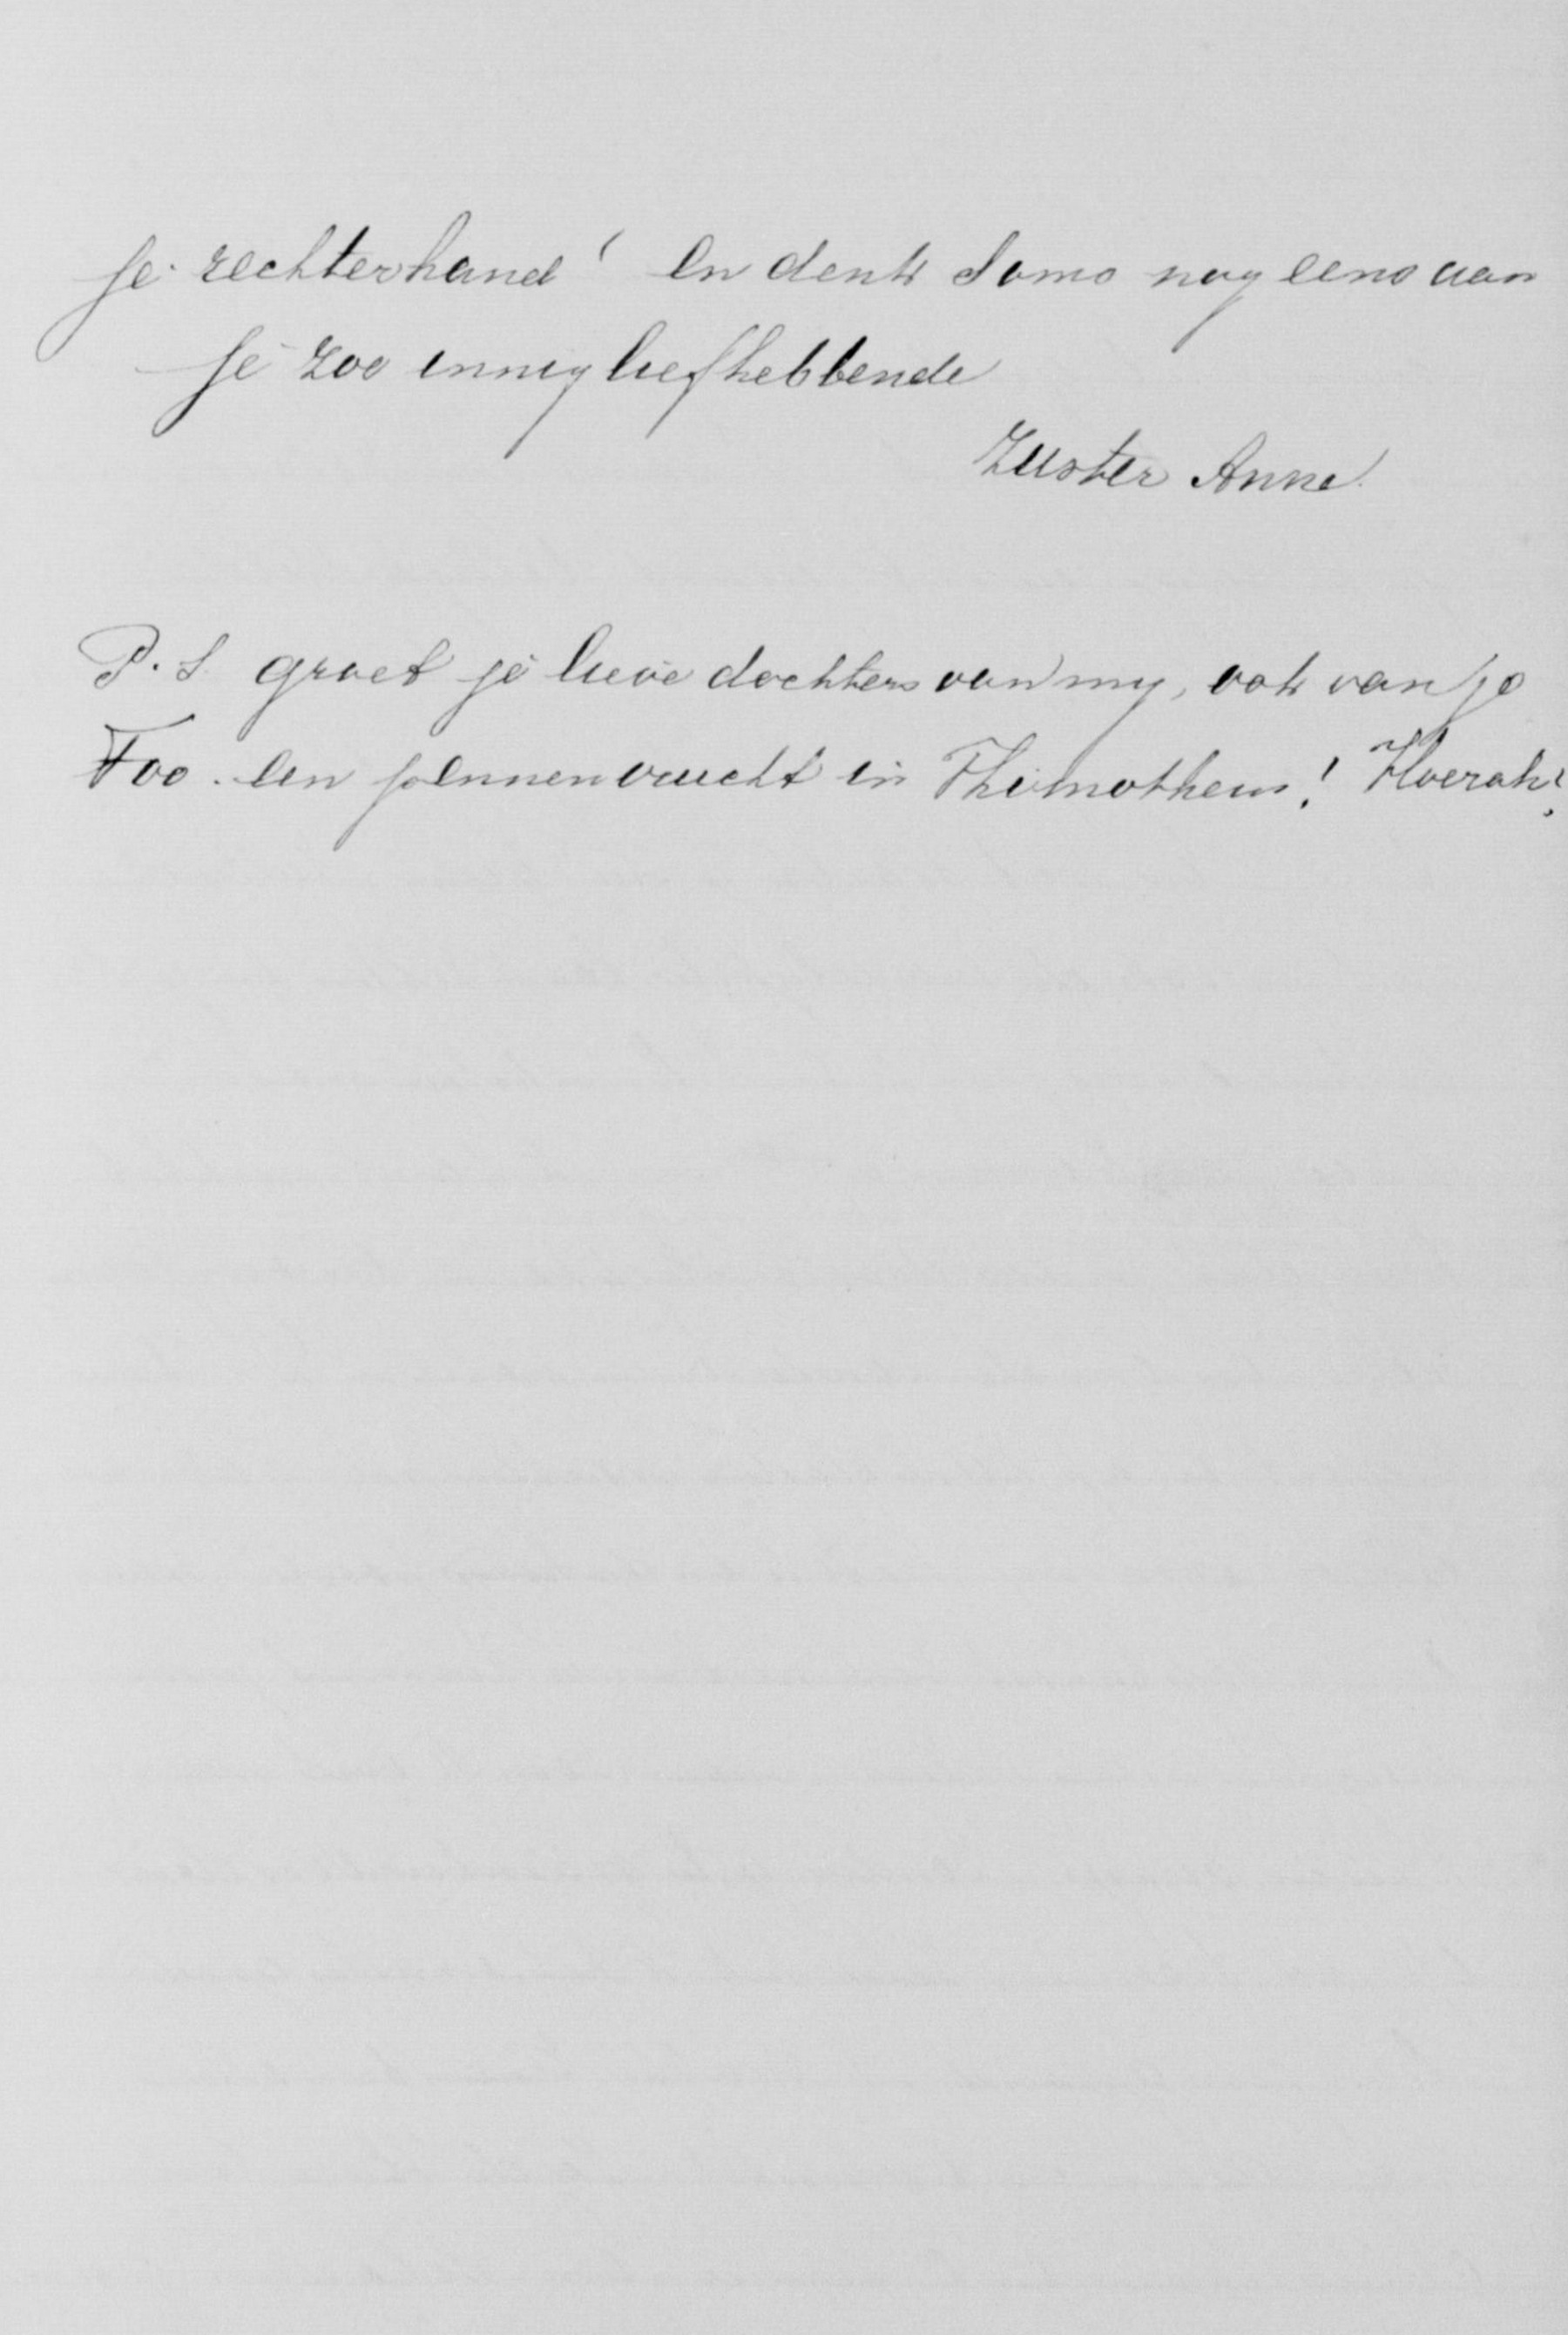 je rechterhand! En denk soms nog eens aan
je zoo innig liefhebbende
Zuster Anne.
P. S. groet je lieve dochters van my, ook van jo
Foo. Een pennenvrucht in Thimotheus! Hoerah!